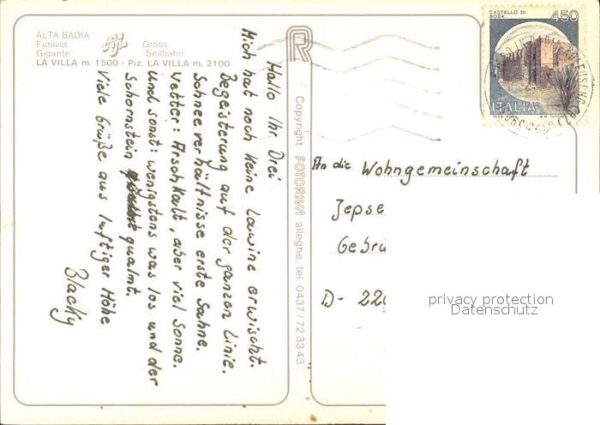 ALTA BADIA
Funivia Gross
Gigante Seilbahn
LA VILLA m. 1500 - Piz. LA VILLA m. 2100
Hallo Ihr Drei
Mich hat noch keine Lawine erwischt.
Begeisterung auf der ganzen Linie.
Schneeverhältnisse erste Sahne.
Wetter: Arschkalt, aber viel Sonne.
und sonst: wenigstens was los und der
Schornstein qualmt.
Viele Grüße aus luftiger Höhe
Blacky
R
Copyright FOTORIVA alleghe, tel. 0437/723343
CASTELLO DI
450
ITALIA
An die Wohngemeinschaft
Jepse
Gebrü
D- 220
privacy protection
Datenschutz